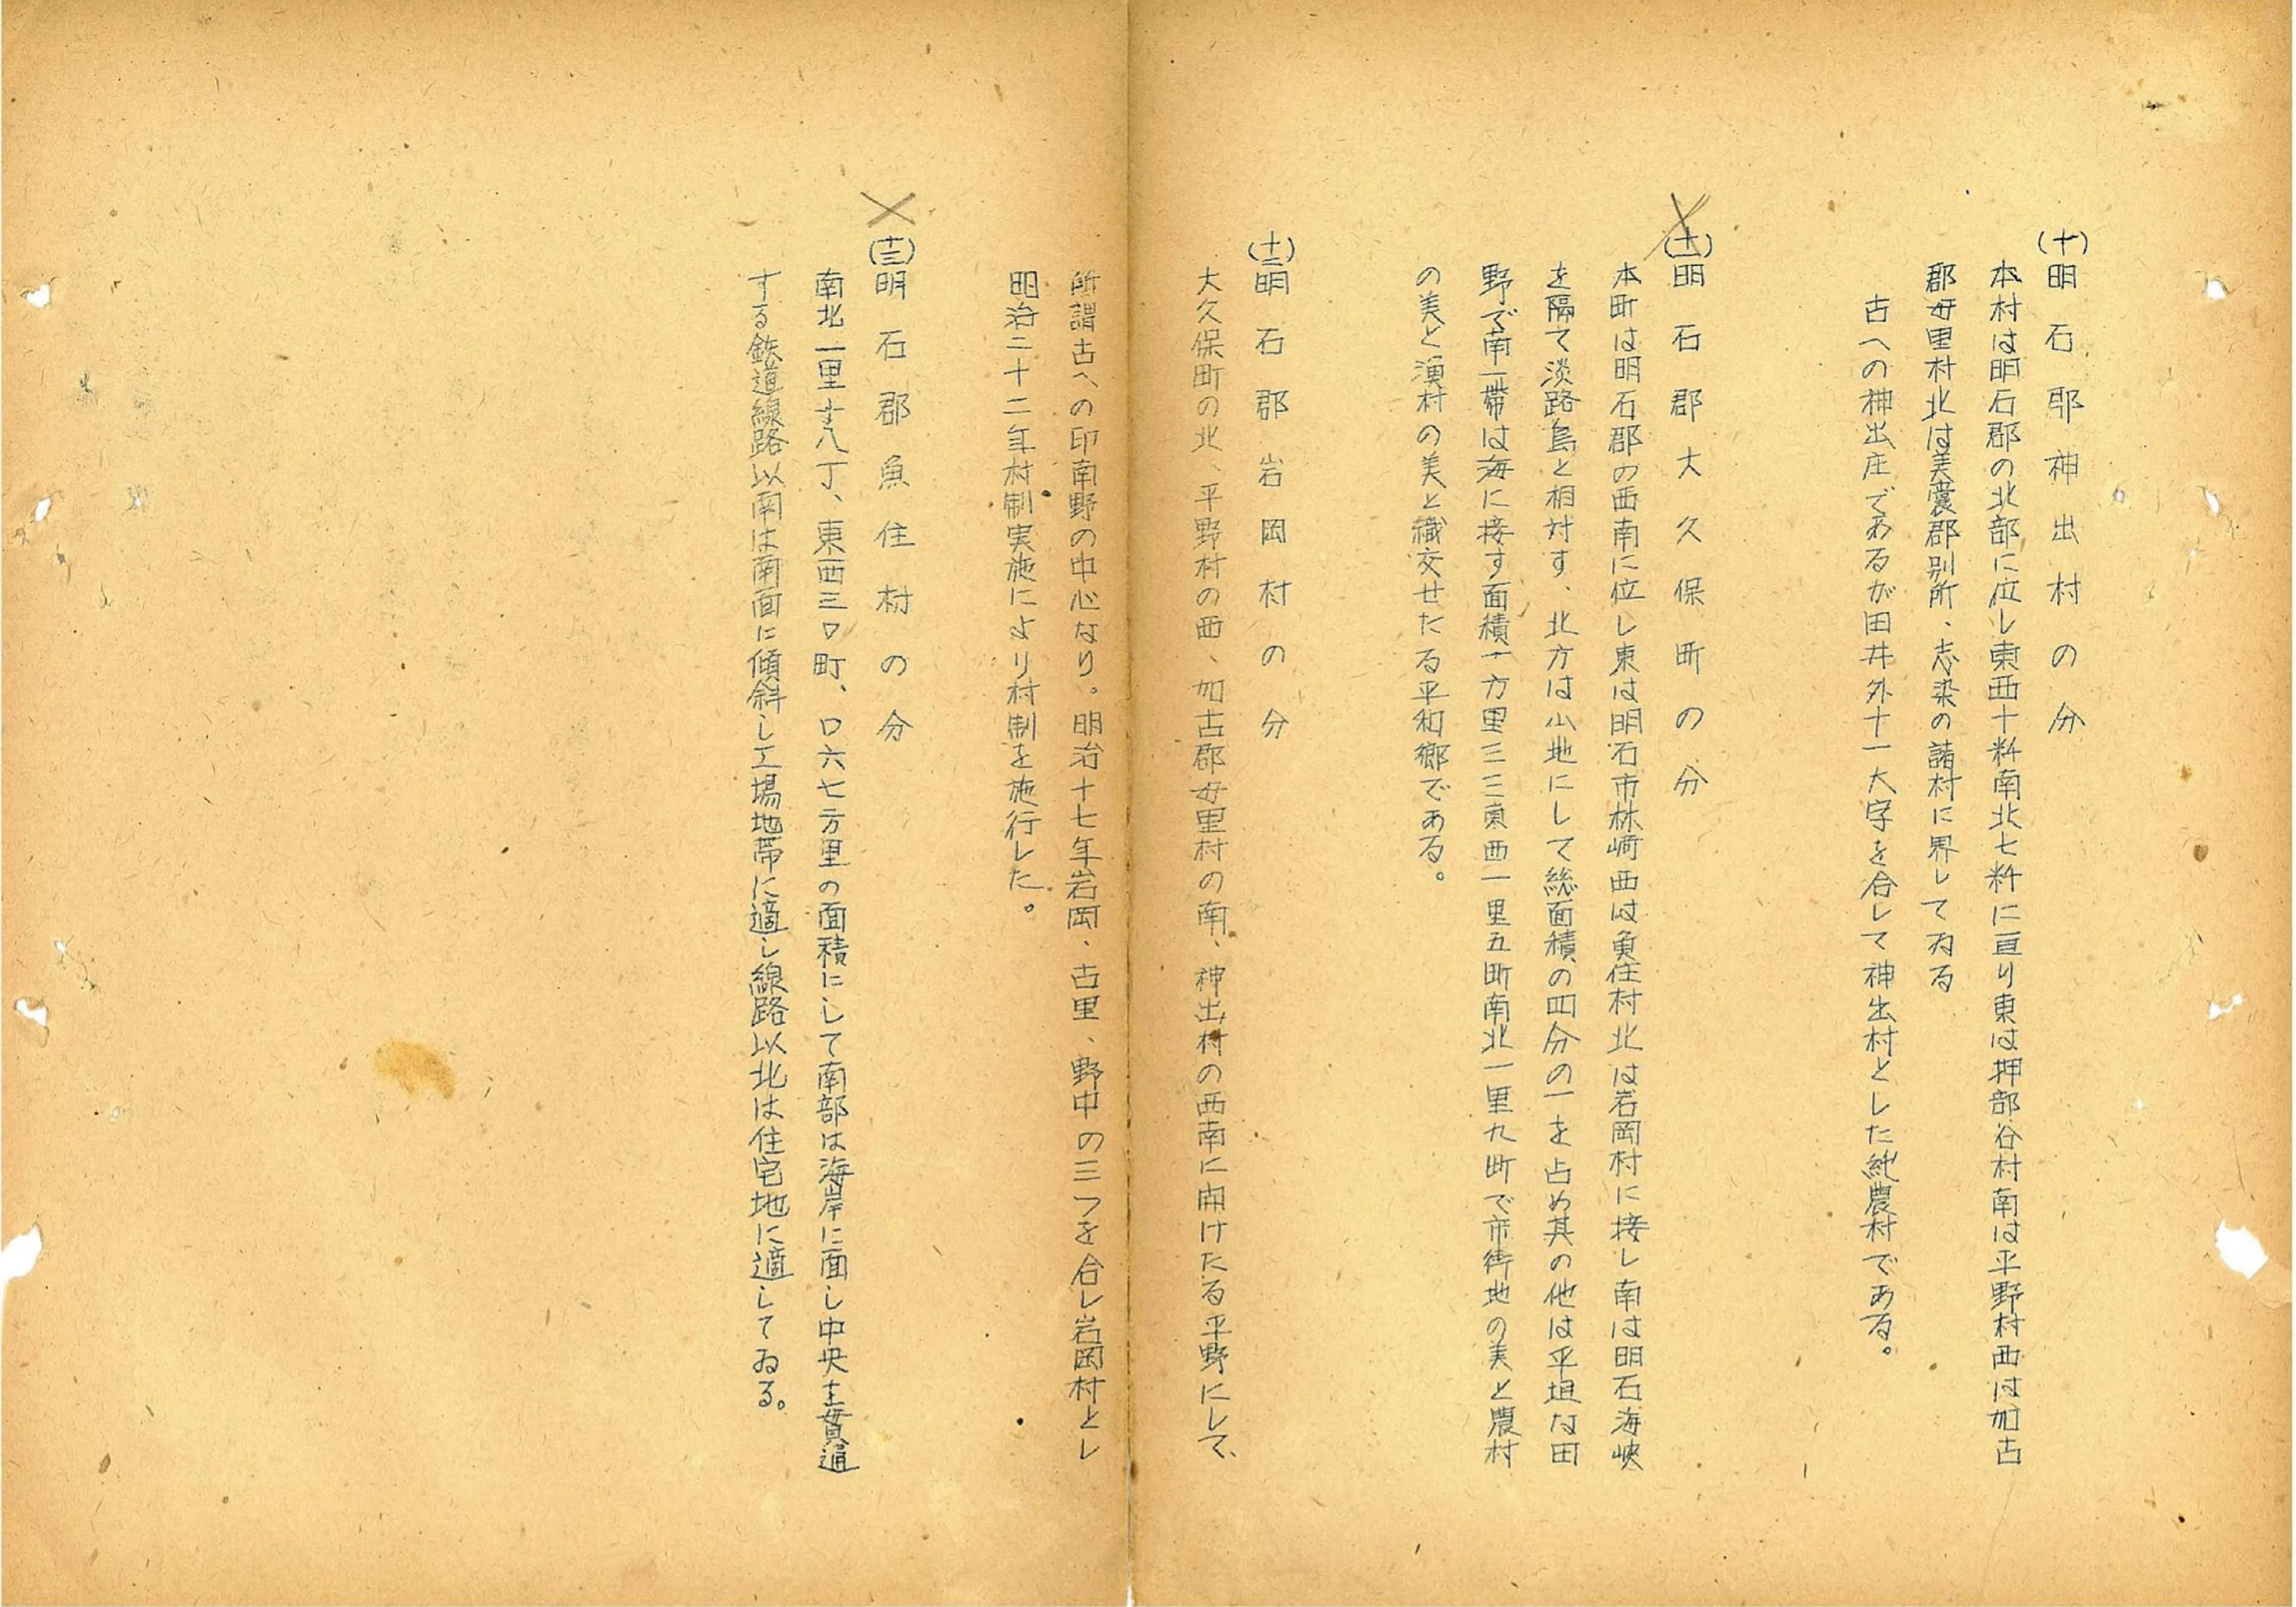 (十)明石郡神出村の分
本村は明石郡の北部に位し東西十粁南北七粁に亘り東は押部谷村南は平野村西は加古
郡母里村北は美嚢郡別所、志染の諸村に界してゐる
古への神出庄であるが田井外十一大字を合して神出村とした純農村である。
(十一)明石郡大久保町の分
本町は明石郡の西南に位し東は明石市林崎西は魚住村北は岩岡村に接し南は明石海峡
を隔て淡路島と相対す、北方は山地にして総面積の四分の一を占め其の他は平坦な田
野で南一帯は海に接す面積一方里三三東西一里五町南北一里九町で市街地の美と農村
の美と漁村の美と織交せたる平和郷である。
(十二)明石郡岩岡村の分
大久保町の北、平野村の西、加古郡母里村の南、神出村の西南に開けたる平野にして、
所謂古への印南野の中心なり。明治十七年岩岡、古里、野中の三つを合し岩岡村とし
明治二十二年村制実施により村制を施行した。
(十三)明石郡魚住村の分
南北一里十八丁、東西三〇町、〇六七方里の面積にして南部は海岸に面し中央を貫通
する鉄道線路以南は南面に傾斜し工場地帯に適し線路以北は住宅地に適してゐる。